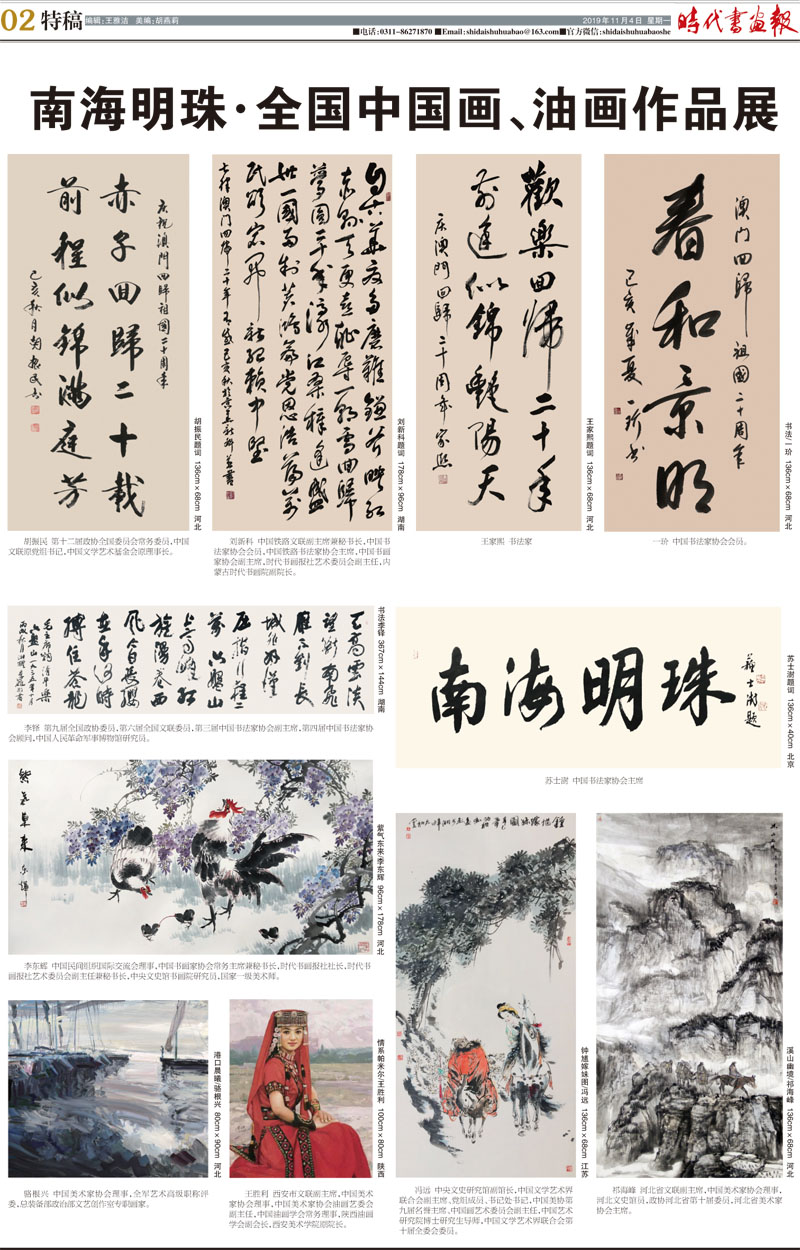 02 特稿
编辑:王雅洁 美编:胡燕莉
2019年11月4日 星期一
时代书画報
■电话:0311-86271870 ■Email:shidaishuhuabao@163.com■官方微信:shidaishuhuabaoshe
南海明珠·全国中国画、油画作品展
庆祝澳門回歸祖國二十周年
赤子回歸二十載
前程似錦滿庭芳
己亥秋月胡振民書
胡振民题词 136cm×68cm 河北
胡振民 第十二届政协全国委员会常务委员,中国
文联原党组书记,中国文学艺术基金会原理事长。
刘新科题词 178cm×96cm 湖南
刘新科 中国铁路文联副主席兼秘书长,中国书
法家协会会员,中国铁路书法家协会主席,中国书画
家协会副主席,时代书画报社艺术委员会副主任,内
蒙古时代书画院副院长。
歡樂回歸二十年
前途似錦艷陽天
庆澳門回歸二十周年 家熙
王家熙题词 136cm×68cm 河北
王家熙 书法家
澳门回歸祖國二十周年
春和景明
己亥年夏一玠书
书法/一玠 136cm×68cm 河北
一玠 中国书法家协会会员。
天高雲淡
望斷南飛
雁不到長
城非好漢
屈指行程二
萬六盤山
上高峰紅
旗漫卷西
風今日長纓
在手何時
縛住蒼龍
书法李铎 367cm×144cm 湖南
李铎 第九届全国政协委员,第六届全国文联委员,第三届中国书法家协会副主席,第四届中国书法家协
会顾问,中国人民革命军事博物馆研究员。
南海明珠
蘇士澍題
苏士澍题词 136cm×40cm 北京
苏士澍 中国书法家协会主席
紫氣東來
东辉
紫气东来/李东辉 96cm×178cm 河北
李东辉 中国民间组织国际交流会理事,中国书画家协会常务主席兼秘书长,时代书画报社社长,时代书
画报社艺术委员会副主任兼秘书长,中央文史馆书画院研究员,国家一级美术师。
港口晨曦/骆根兴 80cm×90cm 河北
骆根兴 中国美术家协会理事,全军艺术高级职称评
委,总装备部政治部文艺创作室专职画家。
情系帕米尔/王胜利 100cm×80cm 陕西
王胜利 西安市文联副主席,中国美术
家协会理事,中国美术家协会油画艺委会
副主任,中国油画学会常务理事,陕西油画
学会副会长,西安美术学院原院长。
钟馗嫁妹图/冯远 136cm×68cm 江苏
冯远 中央文史研究馆副馆长,中国文学艺术界
联合会副主席、党组成员、书记处书记,中国美协第
九届名誉主席,中国画艺术委员会副主任,中国艺术
研究院博士研究生导师,中国文学艺术界联合会第
十届全委会委员。
溪山幽境/祁海峰 136cm×68cm 河北
祁海峰 河北省文联副主席,中国美术家协会理事,
河北文史馆员,政协河北省第十届委员,河北省美术家
协会主席。